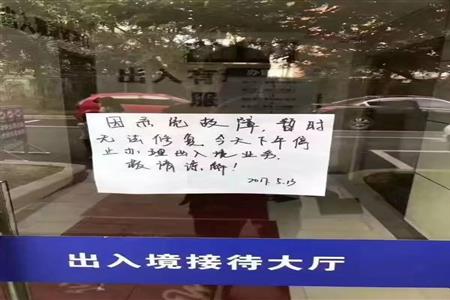 出入管
服
因系统故障,暂时
无法修复,今天下午停
止办理出入境业务,
敬请谅解!
2017.5.13
出入境接待大厅